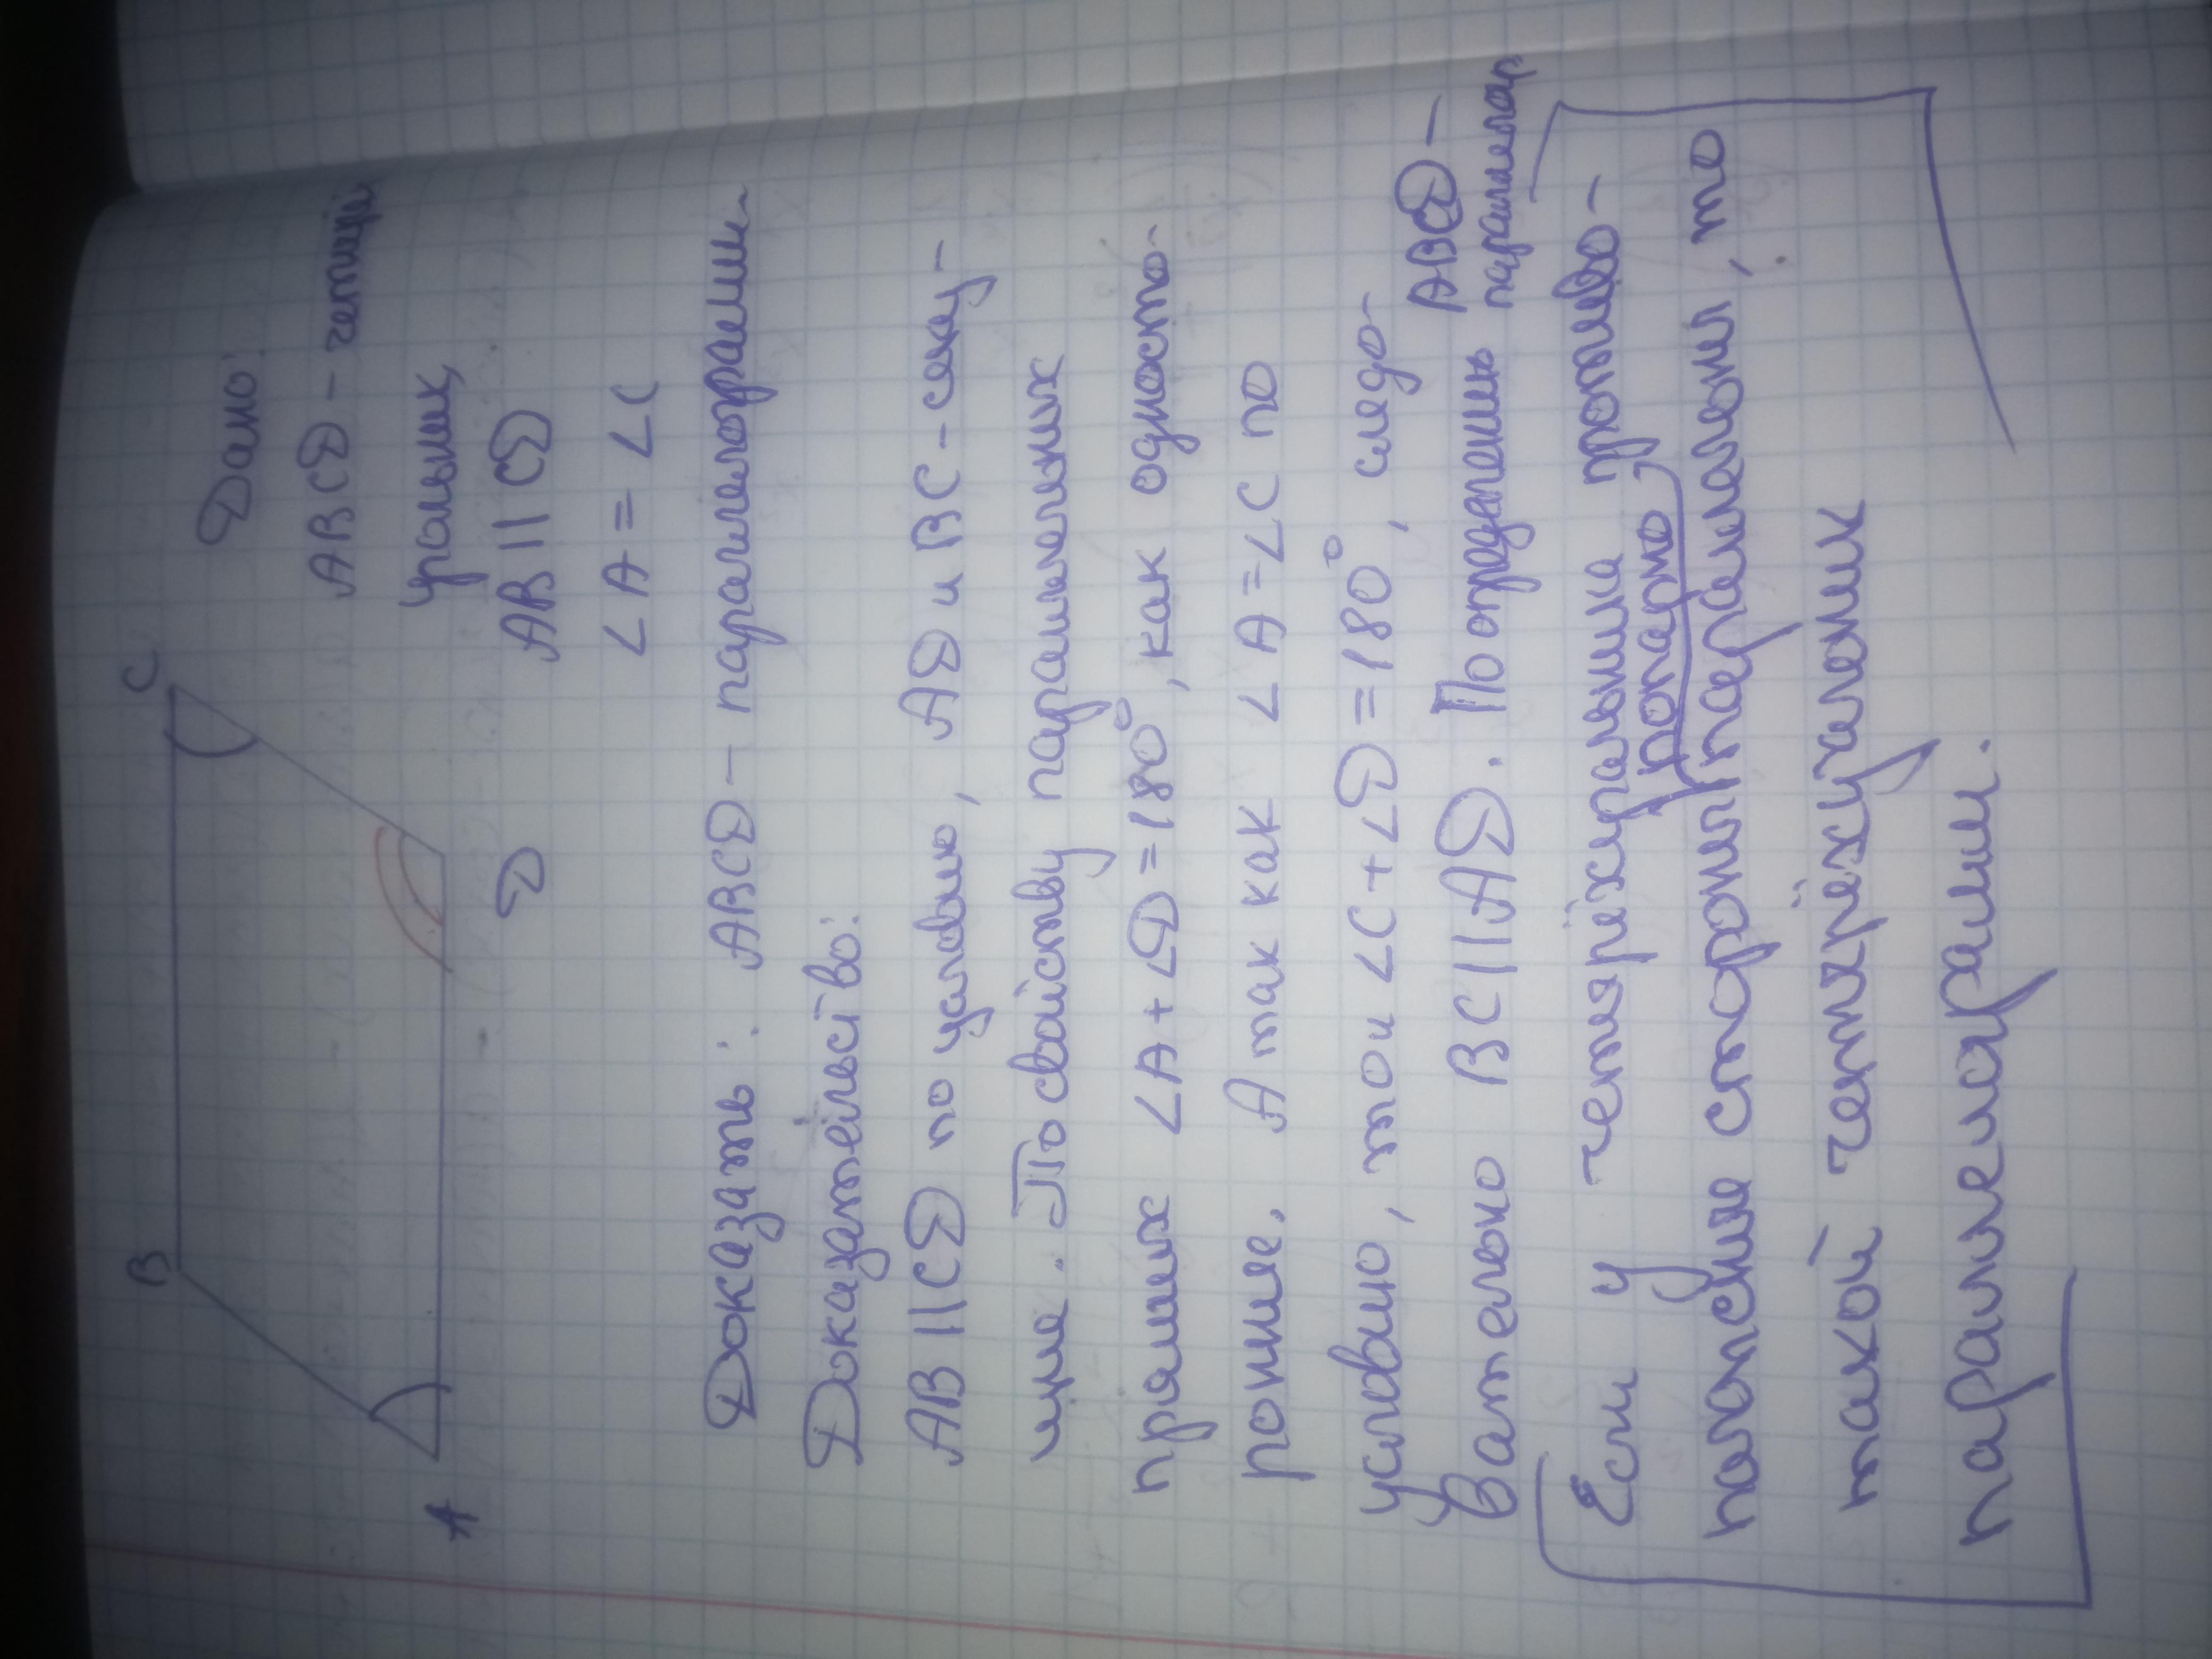 B C
A D
Дано:
ABCD - четырёх
угольник,
AB || CD
∠A = ∠C
Доказать: ABCD - паралелограмм.
Доказательство:
AB || CD по условию, AD и BC - секу-
щие. По свойству паралельных
прямых ∠A + ∠D = 180°, как одност-
ронние. А так как ∠A = ∠C по
условию, то и ∠C + ∠D = 180°, следо-
вательно BC || AD. По определению ABCD -
паралелогр
Если у четырёхугольника противо-
попарно
положные стороны паралельны, то
такой четырёхугольник
паралелограмм.